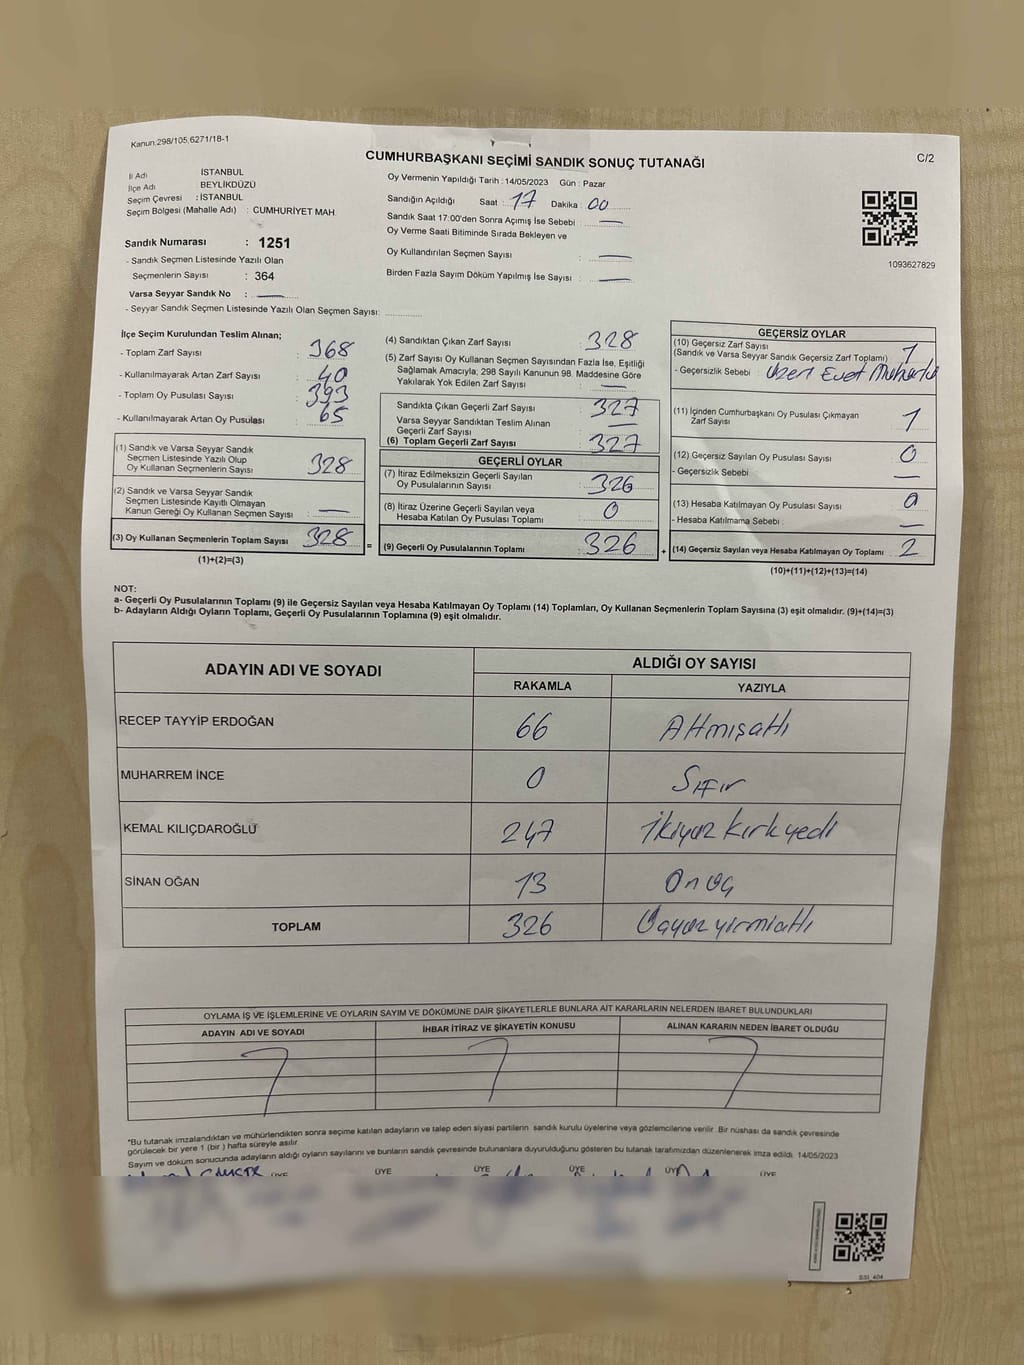 Kanun.298/105,6271/18-1
C/2
CUMHURBAŞKANI SEÇİMİ SANDIK SONUÇ TUTANAĞI
İl Adı İSTANBUL
İlçe Adı BEYLİKDÜZÜ
Seçim Çevresi : İSTANBUL
Seçim Bölgesi (Mahalle Adı) : CUMHURİYET MAH.
Sandık Numarası : 1251
- Sandık Seçmen Listesinde Yazılı Olan
Seçmenlerin Sayısı : 364
Varsa Seyyar Sandık No :
- Seyyar Sandık Seçmen Listesinde Yazılı Olan Seçmen Sayısı:
Oy Vermenin Yapıldığı Tarih : 14/05/2023 Gün : Pazar
Sandığın Açıldığı Saat : 17 Dakika : 00
Sandık Saat 17:00'den Sonra Açımış İse Sebebi :
Oy Verme Saati Bitiminde Sırada Bekleyen ve
Oy Kullandırılan Seçmen Sayısı :
Birden Fazla Sayım Döküm Yapılmış İse Sayısı :
1093627829
İlçe Seçim Kurulundan Teslim Alınan;
- Toplam Zarf Sayısı : 368
- Kullanılmayarak Artan Zarf Sayısı : 40
- Toplam Oy Pusulası Sayısı : 393
- Kullanılmayarak Artan Oy Pusulası : 65
(1) Sandık ve Varsa Seyyar Sandık
Seçmen Listesinde Yazılı Olup
Oy Kullanan Seçmenlerin Sayısı : 328
(2) Sandık ve Varsa Seyyar Sandık
Seçmen Listesinde Kayıtlı Olmayan
Kanun Gereği Oy Kullanan Seçmen Sayısı :
(3) Oy Kullanan Seçmenlerin Toplam Sayısı : 328
(1)+(2)=(3)
=
(4) Sandıktan Çıkan Zarf Sayısı : 328
(5) Zarf Sayısı Oy Kullanan Seçmen Sayısından Fazla İse, Eşitliği
Sağlamak Amacıyla; 298 Sayılı Kanunun 98. Maddesine Göre
Yakılarak Yok Edilen Zarf Sayısı :
Sandıkta Çıkan Geçerli Zarf Sayısı : 327
Varsa Seyyar Sandıktan Teslim Alınan
Geçerli Zarf Sayısı
(6) Toplam Geçerli Zarf Sayısı : 327
GEÇERLİ OYLAR
(7) İtiraz Edilmeksizin Geçerli Sayılan
Oy Pusulalarının Sayısı : 326
(8) İtiraz Üzerine Geçerli Sayılan veya
Hesaba Katılan Oy Pusulası Toplamı : 0
(9) Geçerli Oy Pusulalarının Toplamı : 326
+
GEÇERSİZ OYLAR
(10) Geçersiz Zarf Sayısı
(Sandık ve Varsa Seyyar Sandık Geçersiz Zarf Toplamı) : 1
- Geçersizlik Sebebi : üzeri Evet Mühürlü
(11) İçinden Cumhurbaşkanı Oy Pusulası Çıkmayan
Zarf Sayısı : 1
(12) Geçersiz Sayılan Oy Pusulası Sayısı : 0
- Geçersizlik Sebebi :
(13) Hesaba Katılmayan Oy Pusulası Sayısı : 0
- Hesaba Katılmama Sebebi :
(14) Geçersiz Sayılan veya Hesaba Katılmayan Oy Toplamı : 2
(10)+(11)+(12)+(13)=(14)
NOT:
a- Geçerli Oy Pusulalarının Toplamı (9) ile Geçersiz Sayılan veya Hesaba Katılmayan Oy Toplamı (14) Toplamları, Oy Kullanan Seçmenlerin Toplam Sayısına (3) eşit olmalıdır. (9)+(14)=(3)
b- Adayların Aldığı Oyların Toplamı, Geçerli Oy Pusulalarının Toplamına (9) eşit olmalıdır.
ADAYIN ADI VE SOYADI ALDIĞI OY SAYISI
RAKAMLA YAZIYLA
RECEP TAYYİP ERDOĞAN 66 Altmışaltı
MUHARREM İNCE 0 Sıfır
KEMAL KILIÇDAROĞLU 247 İkiyüz kırk yedi
SİNAN OĞAN 13 On üç
TOPLAM 326 Üçyüz yirmialtı
OYLAMA İŞ VE İŞLEMLERİNE VE OYLARIN SAYIM VE DÖKÜMÜNE DAİR ŞİKAYETLERLE BUNLARA AİT KARARLARIN NELERDEN İBARET BULUNDUKLARI
ADAYIN ADI VE SOYADI İHBAR İTİRAZ VE ŞİKAYETİN KONUSU ALINAN KARARIN NEDEN İBARET OLDUĞU
*Bu tutanak imzalandıktan ve mühürlendikten sonra seçime katılan adayların ve talep eden siyasi partilerin sandık kurulu üyelerine veya gözlemcilerine verilir. Bir nüshası da sandık çevresinde
görülecek bir yere 1 (bir ) hafta süreyle asılır.
Sayım ve döküm sonucunda adayların aldığı oyların sayılarını ve bunların sandık çevresinde bulunanlara duyurulduğunu gösteren bu tutanak tarafımızdan düzenlenerek imza edildi. 14/05/2023
ÜYE ÜYE ÜYE ÜYE ÜYE ÜYE